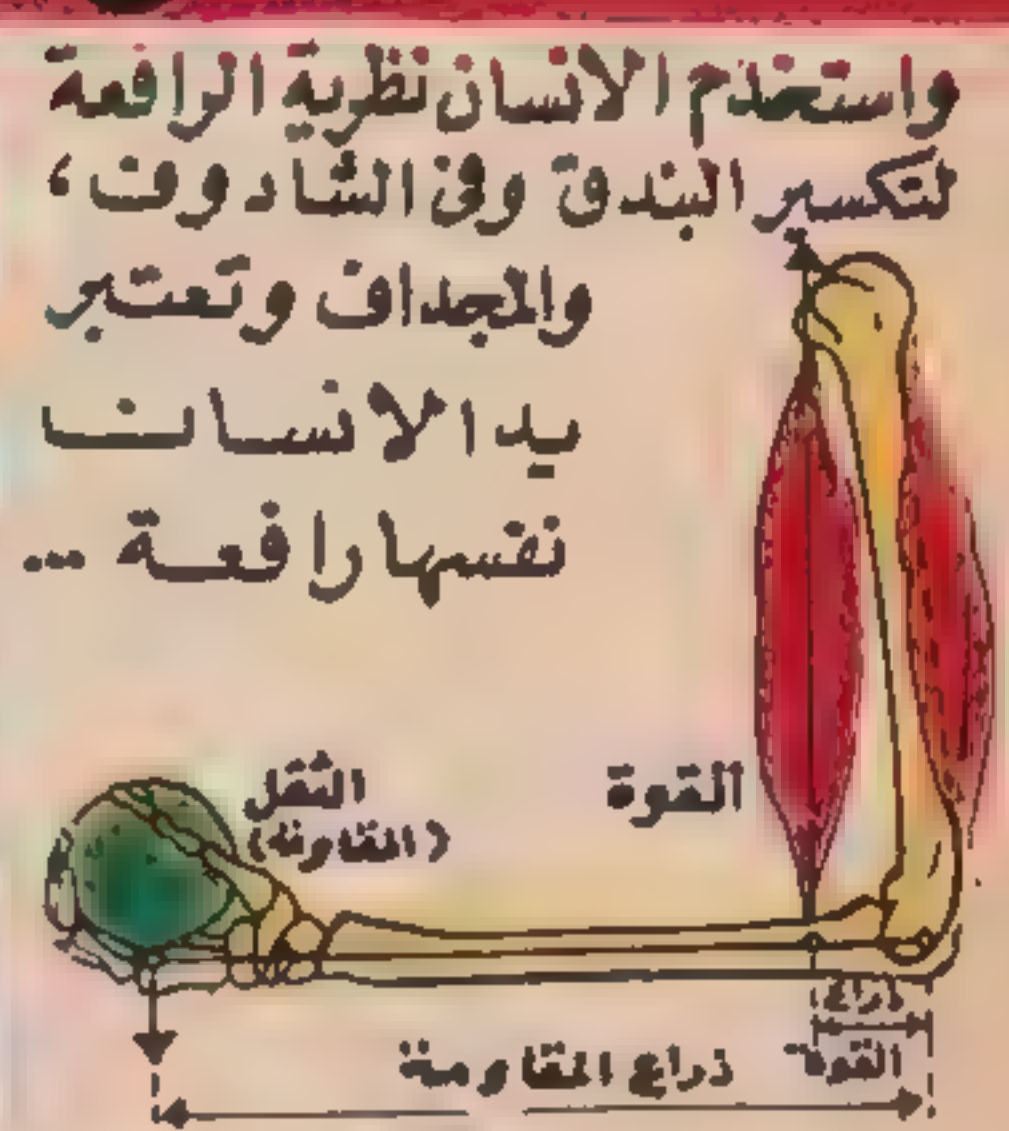 واستخدم الانسان نظرية الرافعة
لتكسير البندق وفى الشادوف،
والمجداف وتعتبر
يد الانسان
نفسها رافعة ...
الثقل
(المقاومة)
القوة
ذراع
القوة
ذراع المقاومة